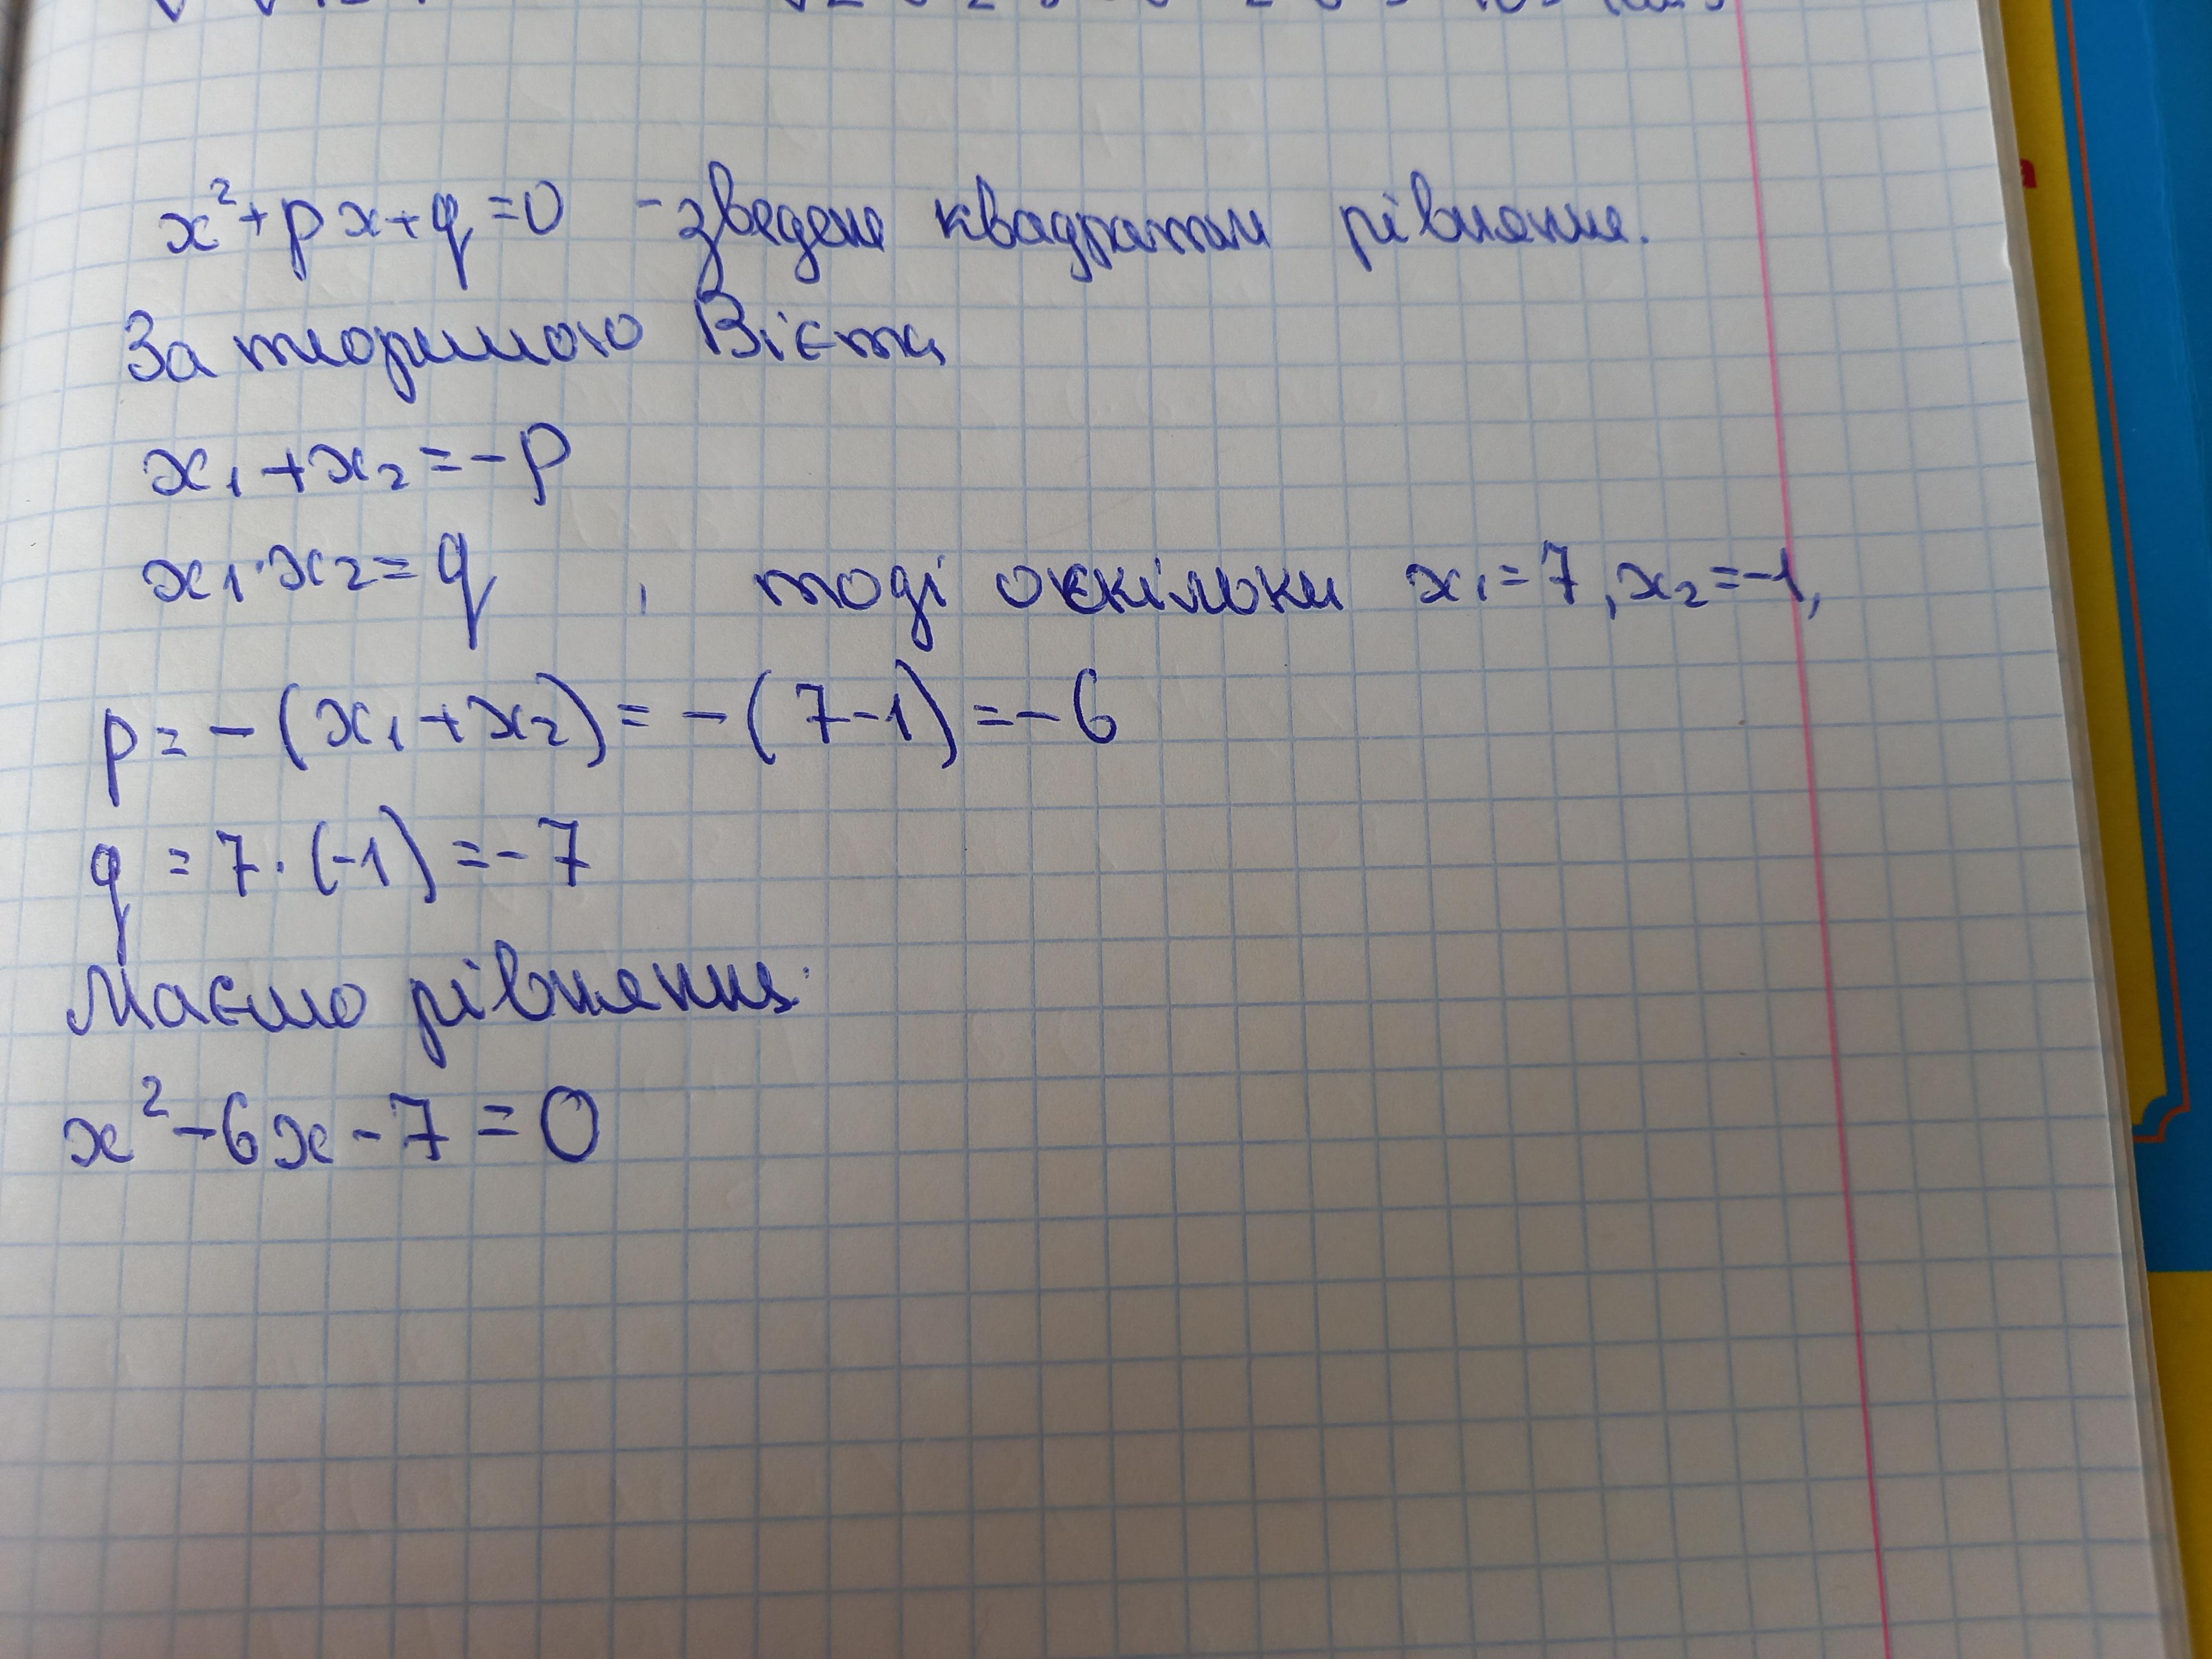 x²+px+q=0 - зведене квадратне рівняння.
За теоремою Вієта
x₁+x₂=-p
x₁·x₂=q , тоді оскільки x₁=7, x₂=-1,
p=-(x₁+x₂)=-(7-1)=-6
q=7·(-1)=-7
Маємо рівняння:
x²-6x-7=0